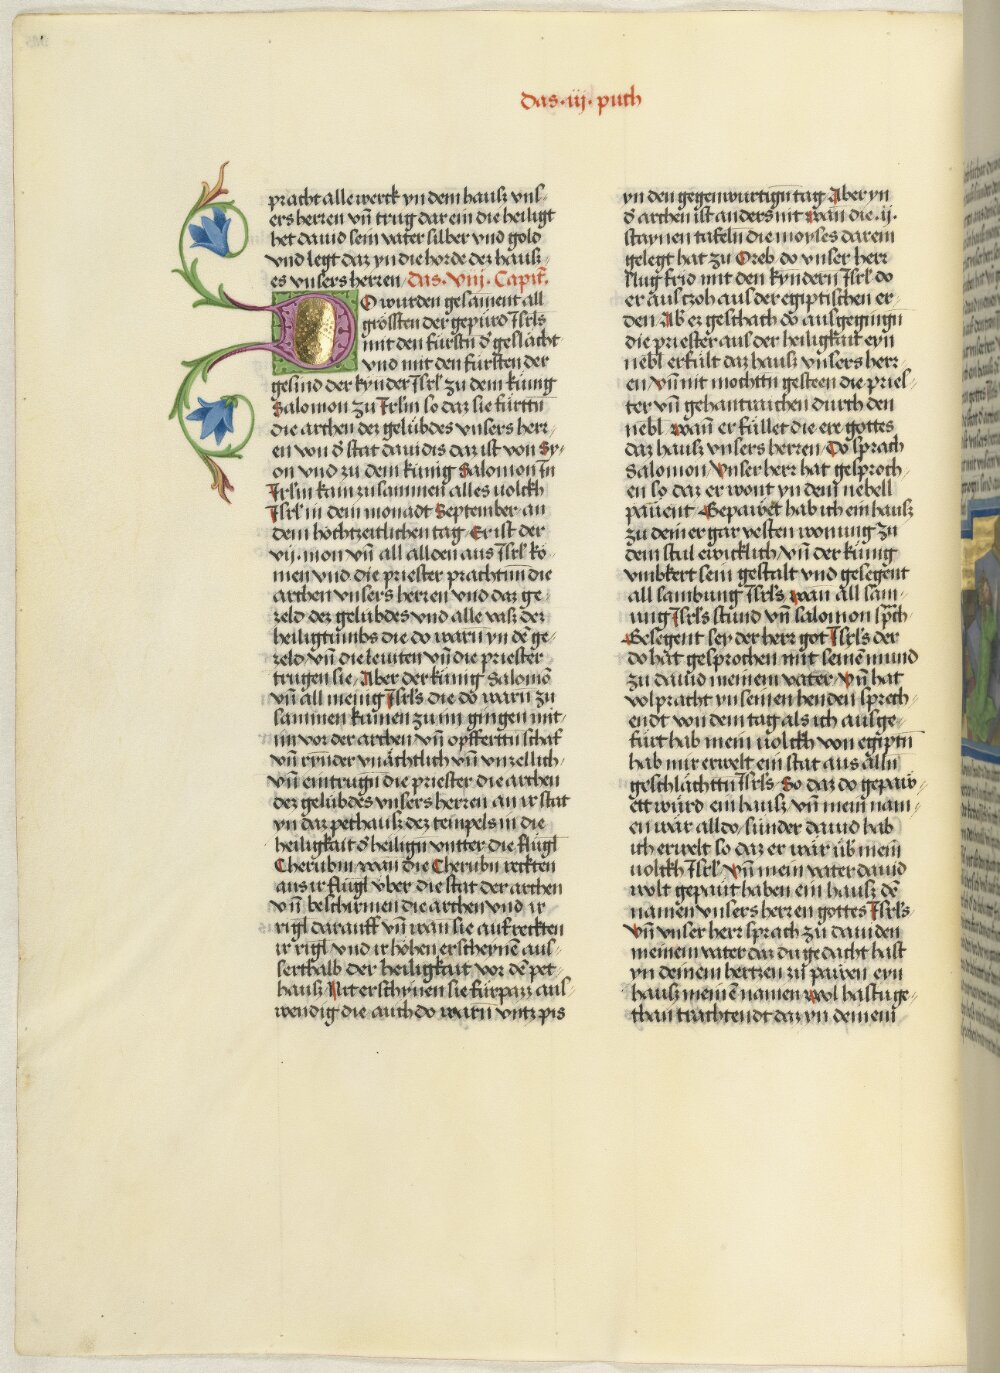 das · iij · puch
pracht alle werck yn dem hauß vns-
ers herren vn̄ trug dar ein die heiligt
het dauid sein vater silber vnd gold
vnd legt daz yn die horde dez hauß-
es vnsers herren · das · Viij · Capit̄ ·
DO wurden gesament all
grössten der gepurd Isrl's
mit den fürstn̄ d' geslächt
vnd mit den fürsten der
gesind der kynder Isrl' zu dem kunig
Salomon zu Jrl'm so daz sie fürttn̄
die archen dez gelübdes vnsers herr-
en von d' stat dauidis daz ist von Sy-
on vnd zu dem kunig Salomon In
Jrl'm kam zusammen alles volckh
Isrl' in dem monadt September an
dem hochtzeitlichen tag · Er ist der
vij · mon vn̄ all allden aus Isrl' ko-
men vnd die priester prachtnn die
archen vnsers herren vnd daz ge-
zeld dez gelübdes vnd alle vaß dez
heiligtumbs die do warn̄ yn dē ge-
zeld / vn̄ die leuiten vn̄ die priester
trugen sie / Aber der kunig Salomō
vn̄ all menig Isrl's die do warn̄ zu
sammen kumen zu im gingen mit-
im vor der archen / vn̄ opffertn̄ schaf
vn̄ rynder vnächtlich vn̄ vnzellich-
vn̄ eintrugn̄ die priester die archen
dez gelübdes vnsers herren an ir stat
yn daz pethauß dez tempels in die
heiligkait d' heilign̄ vntter die flügl
Cherubin wan die Cherubn reckten
aus ir flügl vber die stat der archen
vn̄ beschirmen die archen vnd ir
rigl darauff vn̄ wan sie aufreckten
ir rigl vnd ir höhen erscheynē aus-
serthalb der heiligkait vor dē pet-
hauß Nit erschynen sie fürpaz aus-
wendig die auch do warn̄ vntz pis
yn den gegenwurtign̄ tag Aber yn
d' archen ist anders nit wan̄ die · ij ·
staynen tafeln die moyses darein
gelegt hat zu Oreb do vnser herr
slug frid mit den kyndern Isrl' do
er aus tzoh aus der egiptischen er-
den Ab ez geschach do ausgegingn̄
die priester aus der heiligkait eyn
nebl erfült daz hauß vnsers herr-
en vn̄ nit mochttn̄ gesteen die pries-
ter vn̄ gehantraichen durch den
nebl · wan̄ er füllet die ere gottes
daz hauß vnsers herren / Do sprach
Salomon Vnser herr hat gesproch-
en so daz er wont yn dem nebell
pawent · Gepawet hab ich ein hauß
zu deiner gar vesten wonung zu
dem stul ewicklich / vn̄ der kunig
vmbkert sein gestalt vnd gesegent
all sambung Isrl's wan all sam-
ung Isrl's stund vn̄ salomon sp̄ch-
Gesegent sey der herr got Isrl's der
do hat gesprochen mit seinē mund
zu dauid meinem vater / vn̄ hat
volpracht yn seinen henden sprech-
endt von dem tag als ich ausge-
fürt hab mein volckh von egiptn̄
hab nit erwelt ein stat aus alln̄
geschlächttn̄ Isrl's So daz do gepaw-
ett würd ein hauß vn̄ mein nam-
en wär alldo / sunder dauid hab
ich erwelt so daz er wär üb' mein
volckh Isrl' · Vn̄ mein vater dauid
wolt gepaut haben ein hauß dē
namen vnsers herren gottes Isrl's ·
Vn̄ vnser herr sprach zu dauiden
meinem vater daz du gedacht hast
yn deinem hertzen zu pawen eyn
hauß meinē namen wol hastu ge-
than trachtendt daz yn deinem